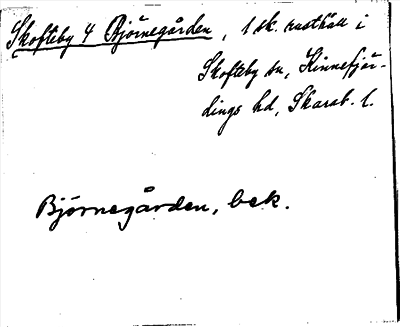 Skofteby 4 Björnegården, 1 sk. rusthåll i
Skofteby sn, Kinnefjär-
dings hd, Skarab. l.
Björnegården, bek.